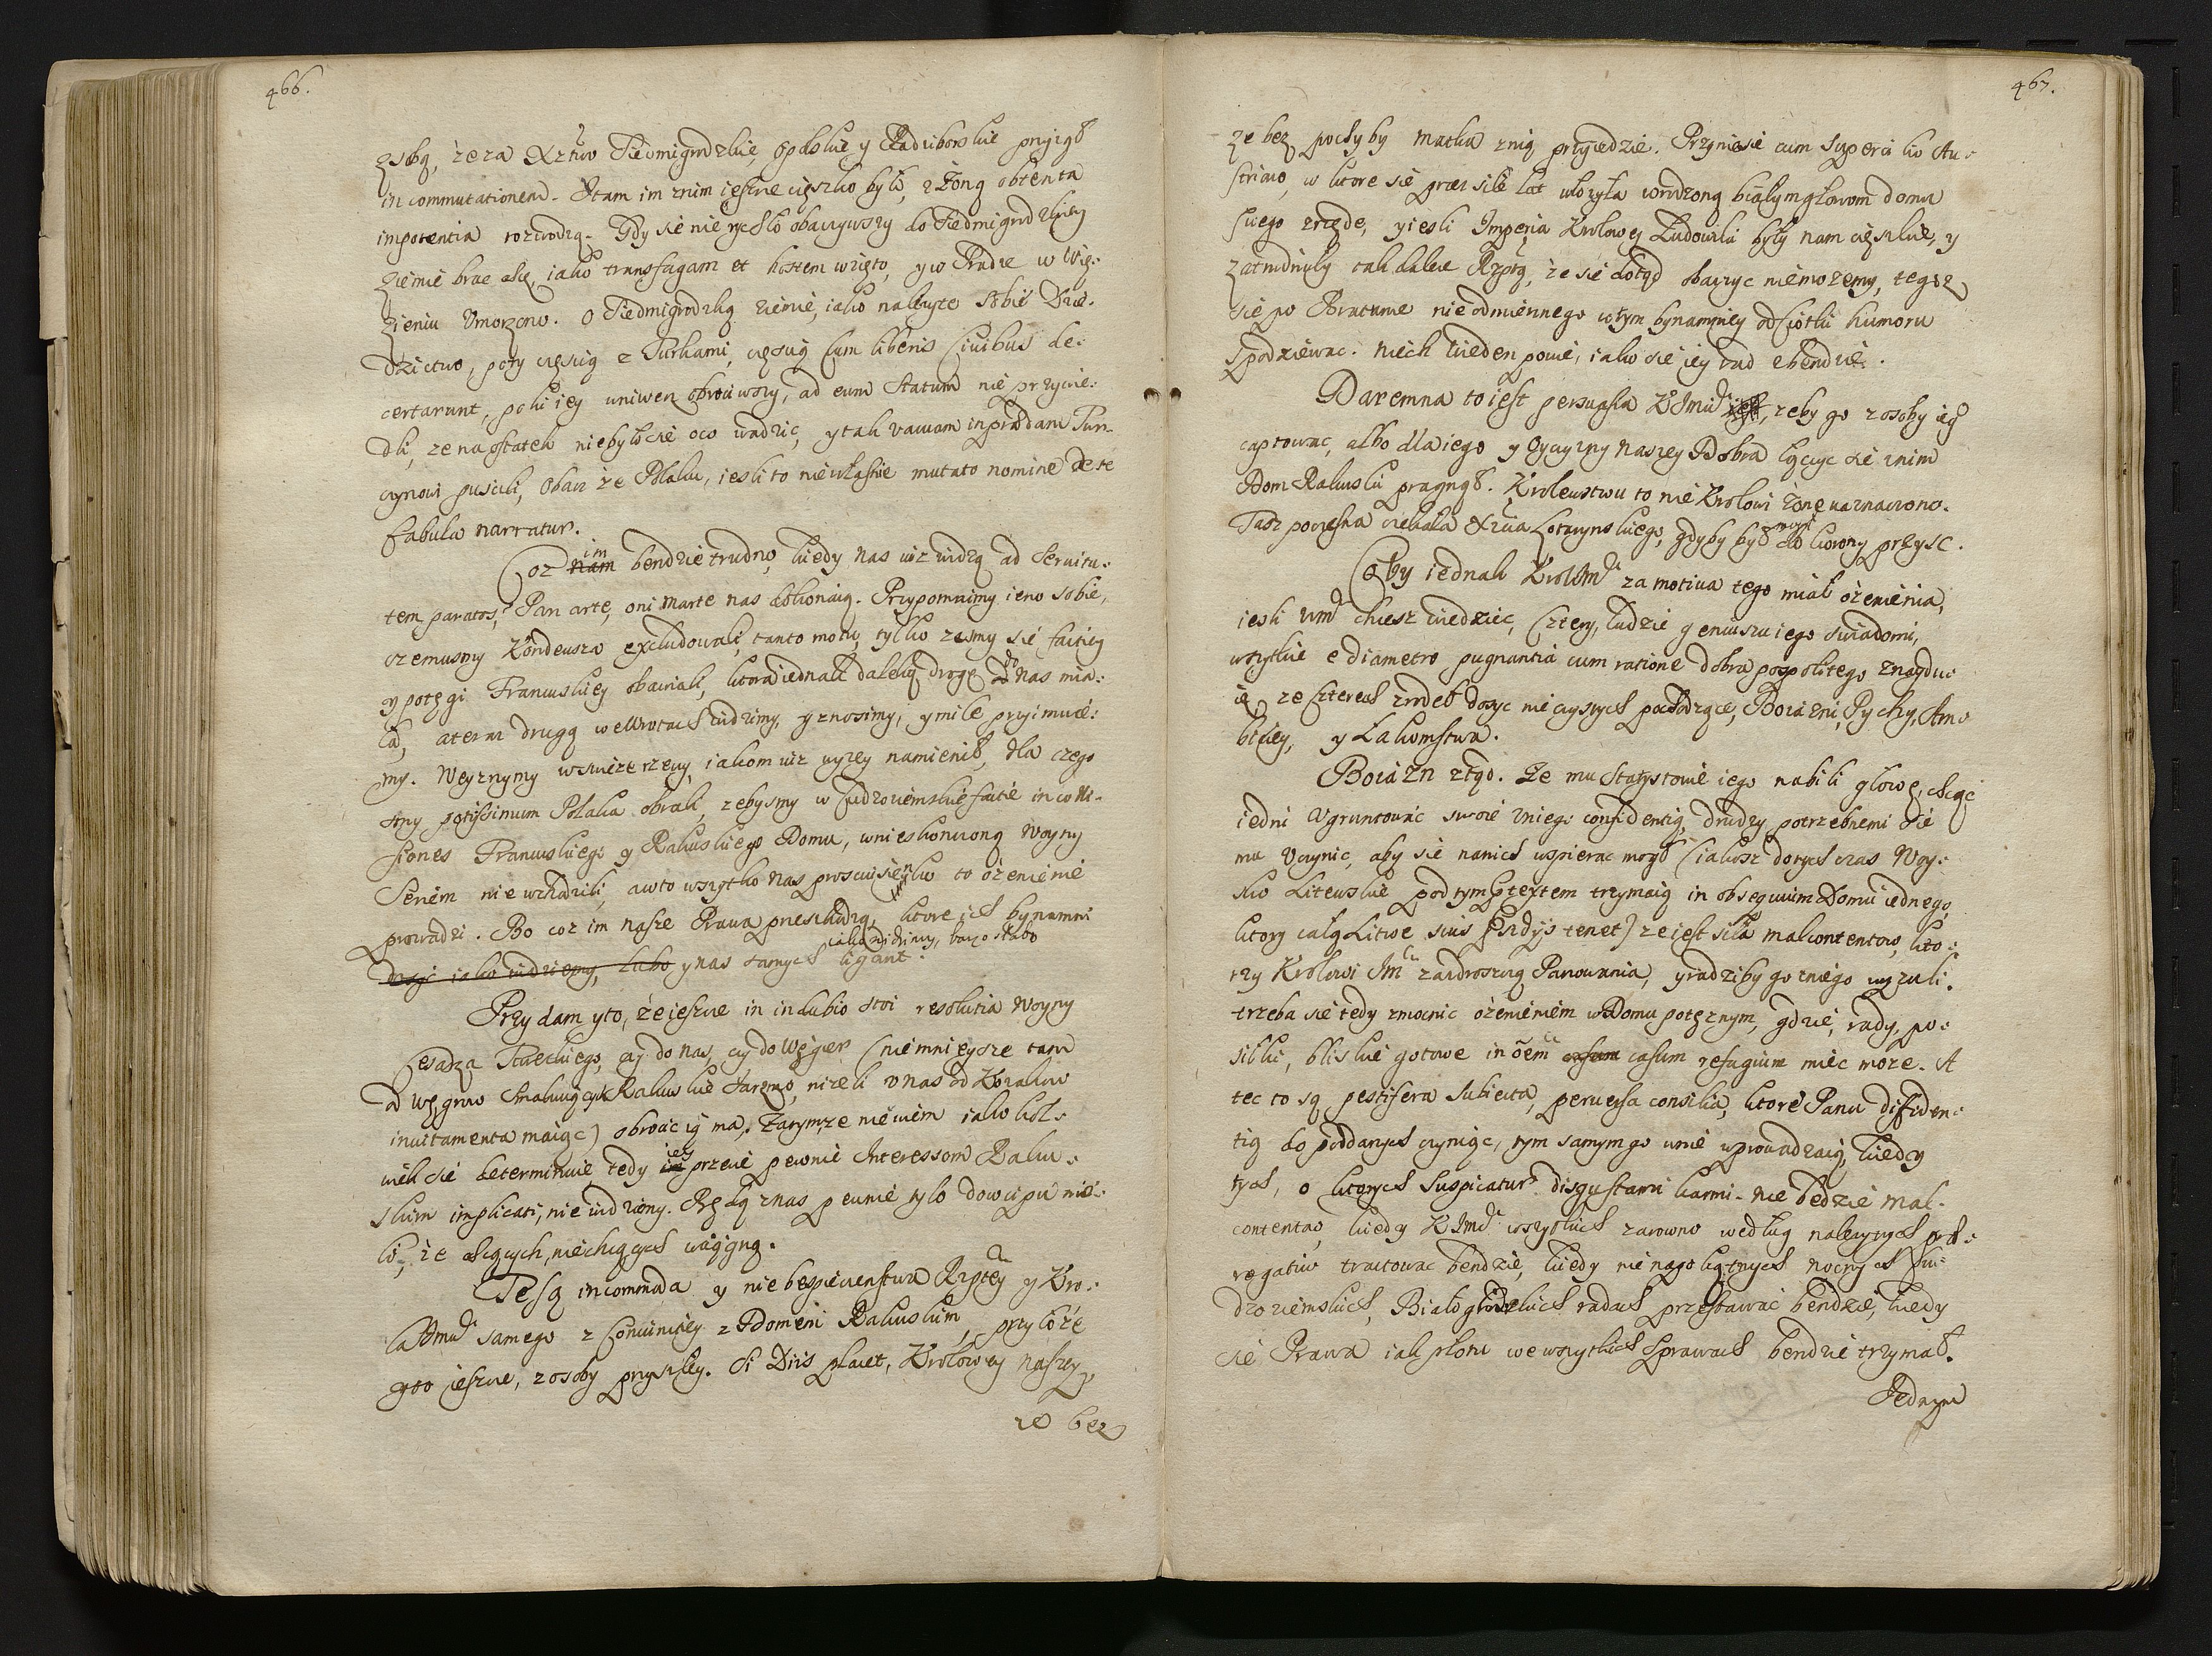 466.
z sobą, że za Xztwo Siedmigrodzkie, Opolskie y Radiborskie przyiął
in commutationem. Atam im znim ieszcze cięszko było, z Żoną obtenta
impotentia rozwodzą. Gdy sie nie rychło obaczywszy do Siedmigrodzkiey
Ziemie brac chcę, iako transfugam et hostem wzięto, y w Pradze w Wię-
zieniu Umorzono. O Siedmigrodzką ziemie, iako należyte sobie Dzie-
dzictwo, poty cięszą z Turkami, cięszą cum liberis Civibus de-
certarunt, poki iey wniwecz obrociwszy, ad eum statum nie przywie-
dli, że na ostatek nie było sie oco wadzic, y tak vacuam in prædam Tur-
czynowi puscili, Obacz że Polaku, iesli to nie własnie mutato nomine de te
fabula narratur.
Coz im bendzie trudno, kiedy nas iuz widzą ad Servitu-
tem paratos? Pan arte, oni Marte nas dokonaią. Przypomnimy ieno sobie,
czemusmy Kondeusza excludowali, tanto motu, tylko zesmy sie factiey
y potęgi Francuskiey obawiali, ktora iednak daleką drogę do nas mia-
ła, a teraz drugą we Wrotach widzimy, y znosimy, y mile przyimuie-
my. Weyrzymy w swieze rzeczy, iakom iuz wyzey namienił, dla czego
smy potissimum Polaka obrali, zebysmy w Cudzoziemskie factie in colli-
siones Francuskiego y Rakuskiego Domu, w nieskonczoną Woyny
Seriem nie wchodzili, a wto wszytko nas prosciusienko to ożenienie
prowadzi. Bo coz im nasze Prawa przeszkodzą, ktore ich bynamni
iako widzimy, barzo słabo
y nas samych ligant.
Przydam y to, że ieszcze in in dubio stoi resolutia Woyny
Cesarza Tureckiego, czy do nas, czy do Węgier (nie mnieysze tam
od Węgrow smakuiących Rakuskie Jarzmo, nizeli u nas od Kozakow
invitamenta maiąc) obrocic ią ma. Zaczymze nie wiem iako kol-
wiek sie determinuie tedy iey przecie pewnie Interessom Raku-
skim implicati, nie uidziemy. Będą znas pewnie tylo dowcipu mie-
li, że chcących, niechcących wciągną.
Te są incommoda y niebespieczenstwa Rzptey y Kro-
la Jmci samego z Coniunctiey z Domem Rakuskim, przyłoże
y to ieszcze, z osoby przyszłey. Si Diis placet, Krolowey naszey,
ze bez
467.
ze bez pochyby matka znią przyiedzie. Przyniesie cum supercilio Au-
striaco, w ktore sie przez siłe lat włozyła wrodzoną białymgłowom domu
swego zrzędę, y iesli Imperia Krolowey Ludowiki były nam cięszkie, y
zatrudniły tak dalece Rzptą, że sie dotąd obaczyc nie mozemy, tegoz
sie po Bratance nieodmiennego w tym bynamniey od Ciotki humoru
spodziewac. Niech kieden powie, iako sie iey rad chendzie.
Daremna to iest persuasia K Jmci, zeby go z osoby iego
captowac, albo dla iego y Oyczyzny naszey Dobra łączyc sie znim
Dom Rakuski pragnął. Krolewstwu to nie Krolowi żonę naznaczono.
Taz pociecha czekała Xcia Lotarynskiego, gdyby był mogł do korony przysc.
Coby iednak Krol Jmc za motiva tego miał ożenienia,
iesli Wmc chcesz wiedziec, Cztery, ludzie geniuszu iego swiadomi,
wszytkie e diametro pugnantia cum ratione dobra pospolitego znayduie
ią, ze czterech zrodeł dosyc nieczystych pochodzące, Boiazni, Pychy, Am-
bitiey, y Łakomstwa.
Boiazn ztąd. Że mu Statystowie iego nabili głowę, chcąc
iedni Ugruntowac swoie uniego confidentią, drudzy potrzebnemi sie
mu Uczynic, aby sie na nich wspierac mogł (iakosz dotych czas Woy-
sko Litewskie pod tym prætextem trzymaią in obsequium Domu iednego,
ktory całą Litwe suis præsidijs tenet) ze iest siła malcontentow, kto-
rzy Krolowi Jmci zazdroszczą Panowania, y radziby go zniego wyzuli.
trzeba sie tedy zmocnic ożenieniem w Domu potęznym, gdzie rady, po-
siłki, bliskie gotowe in omnem casum refugium miec może. A
tec to są pestifera subiecta, perversa consilia, ktore Panu diffiden-
tią do poddanych czyniąc, tym samym go w nie wprowadzaią, kiedy
tych, o ktorych suspicatur, disgustami karmi. Nie będzie mal-
contentow, kiedy K Jmc wszytkich zarowno według należytych præ-
rogatiw tractowac bendzie, kiedy nie na pokątnych nocnych Cu-
dzoziemskich, Białogłowskich radach przestawać bendzie, kiedy
sie Prawa iak płotu we wszytkich Sprawach bendzie trzymał.
Jednym